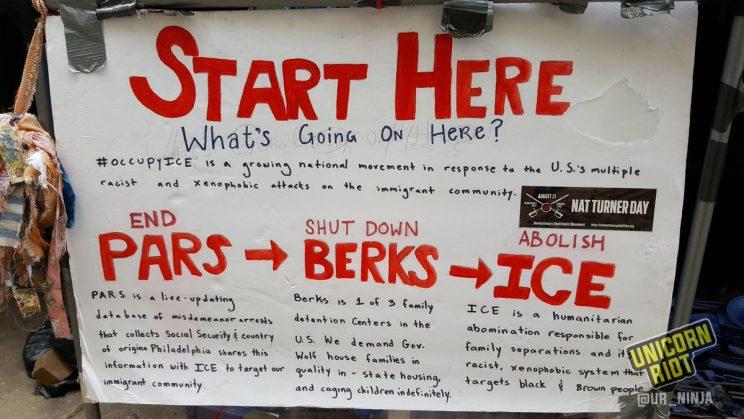 START HERE
WHAT'S GOING ON HERE?
#OCCUPYICE IS A GROWING NATIONAL MOVEMENT IN RESPONSE TO THE U.S.'S MULTIPLE
RACIST AND XENOPHOBIC ATTACKS ON THE IMMIGRANT COMMUNITY.
AUGUST 21
NAT TURNER DAY
END
PARS → 
PARS IS A LIVE-UPDATING
DATABASE OF MISDEMEANOR ARRESTS
THAT COLLECTS SOCIAL SECURITY & COUNTRY
OF ORIGIN. PHILADELPHIA SHARES THIS
INFORMATION WITH ICE TO TARGET OUR
IMMIGRANT COMMUNITY
SHUT DOWN
BERKS →
BERKS IS 1 OF 3 FAMILY
DETENTION CENTERS IN THE
U.S. WE DEMAND GOV.
WOLF HOUSE FAMILIES IN
QUALITY IN-STATE HOUSING,
AND CAGING CHILDREN INDEFINITELY.
ABOLISH
ICE
ICE IS A HUMANITARIAN
ABOMINATION RESPONSIBLE FOR
FAMILY SEPARATIONS. AND
RACIST, XENOPHOBIC SYSTEM THAT
TARGETS BLACK & BROWN PEOPLE
UNICORN
RIOT
@UR_NINJA